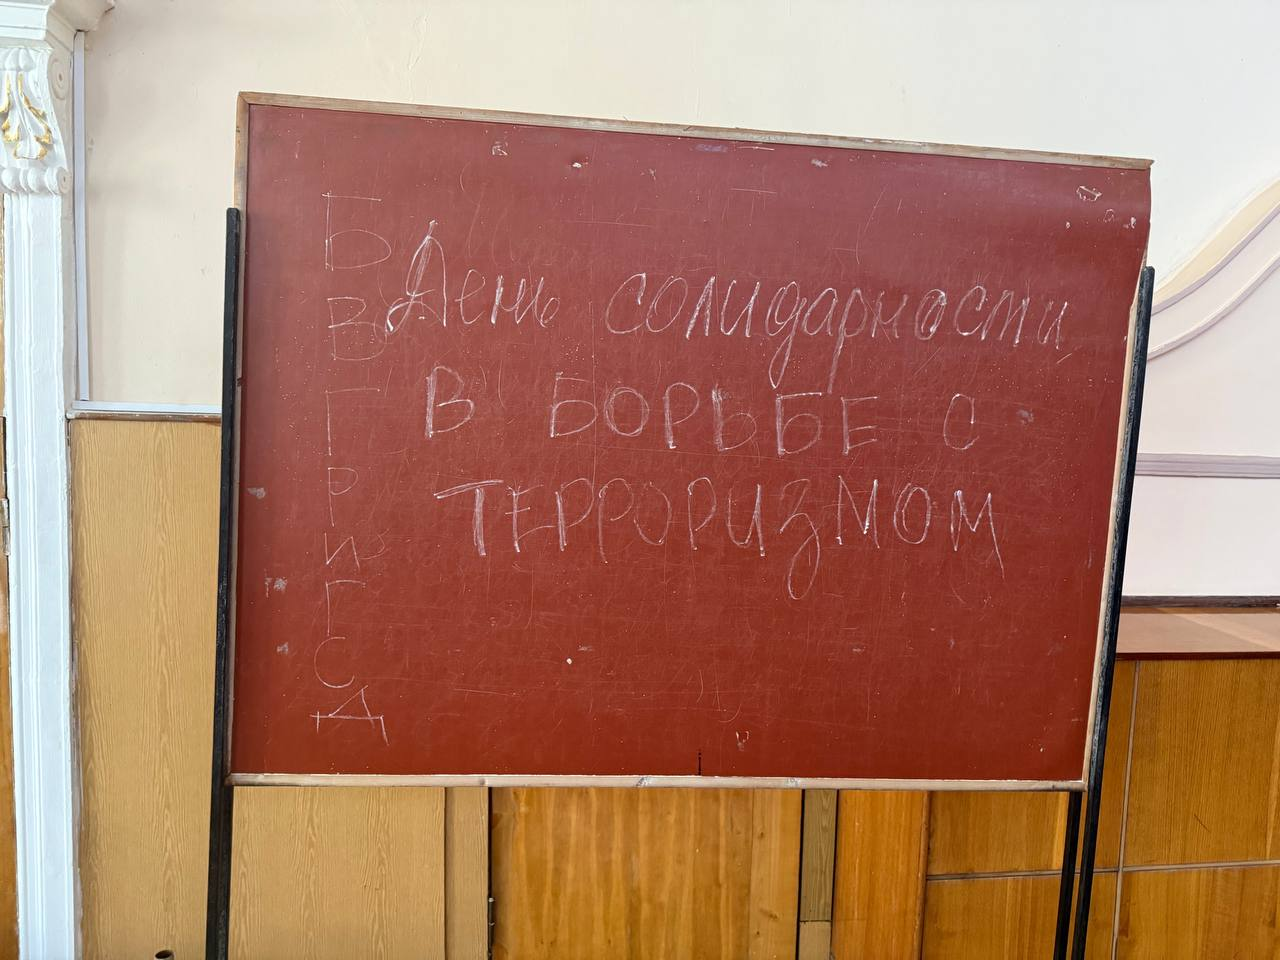 День солидарности
В БОРЬБЕ С
ТЕРРОРИЗМОМ
Б
В
Г
Р
И
Г
С
Д